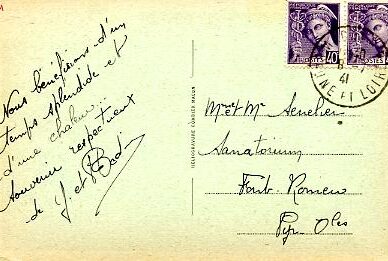 Nous bénéficions d'un
temps splendide et
d'une chaleur...
souvenir respectueux
de J. et
HELIOGRAVURE COMBIER MACON
40
POSTES
8
41
NE ET LOIRE
Mme et Mr
Sanatorium
Font-Romeu
Pyr. Oles